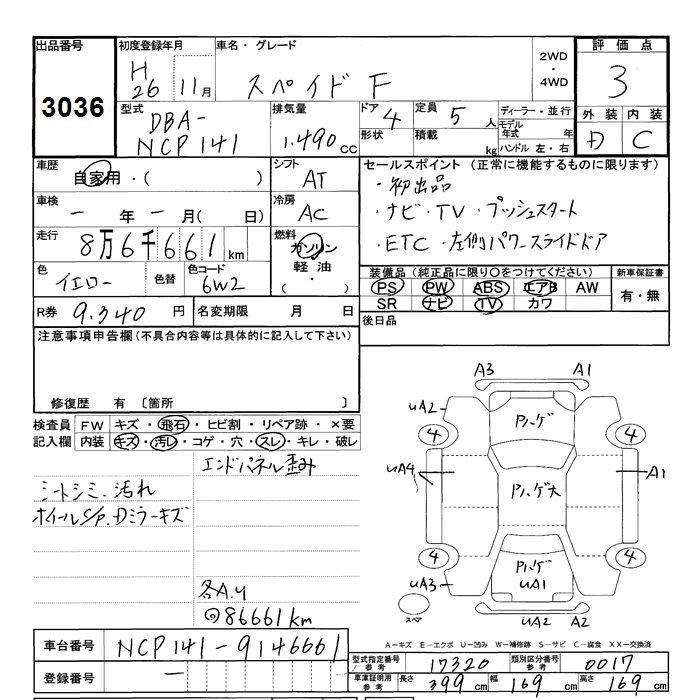 出品番号
3036
初度登録年月
H
26 11月
車名・グレード
スペイド F
2WD
・
4WD
評価点
3
外装 内装
D C
型式
DBA-
NCP141
排気量
1.490 cc
ドア 4
形状
定員 5 人
積載 kg
ディーラー・並行
モデル
年式 年
ハンドル 左・右
車歴
自家用・( )
シフト
AT
車検
一 年 一 月( 日)
冷房
AC
走行
8万6千661 km
燃料
ガソリン
軽油
( ・ )
色
イエロー
色替
色コード
6W2
R券 9.340 円
名変期限 月 日
セールスポイント (正常に機能するものに限ります)
・初出品
・ナビ・TV・プッシュスタート
・ETC・左側パワースライドドア
装備品 (純正品に限り○をつけてください)
PS PW ABS エアB AW
SR ナビ TV カワ
新車保証書
有・無
後日品
注意事項申告欄(不具合内容等は具体的に記入して下さい)
修復歴 有 〔箇所 〕
検査員
記入欄
FW キズ・飛石・ヒビ割・リペア跡・×要
内装 キズ・汚レ・コゲ・穴・スレ・キレ・破レ
エンドパネル歪み
シートシミ、汚れ
ホイールS/P.Dミラーキズ
各A.U
86661km
A3 A1
UA2
Pパーゲ
4 4
UA4
A1
Pパーゲ大
4 4
Pパーゲ
UA1
UA3
スペア
UA2 A2
A-キズ E-エクボ U-凹み W-補修跡 S-サビ C-腐食 XX-交換済
車台番号 NCP141-9146661
登録番号 一
型式指定番号
参考
17320
類別区分番号
参考
0017
車庫証明用
参考
長さ 399 cm 幅 169 cm 高さ 169 cm